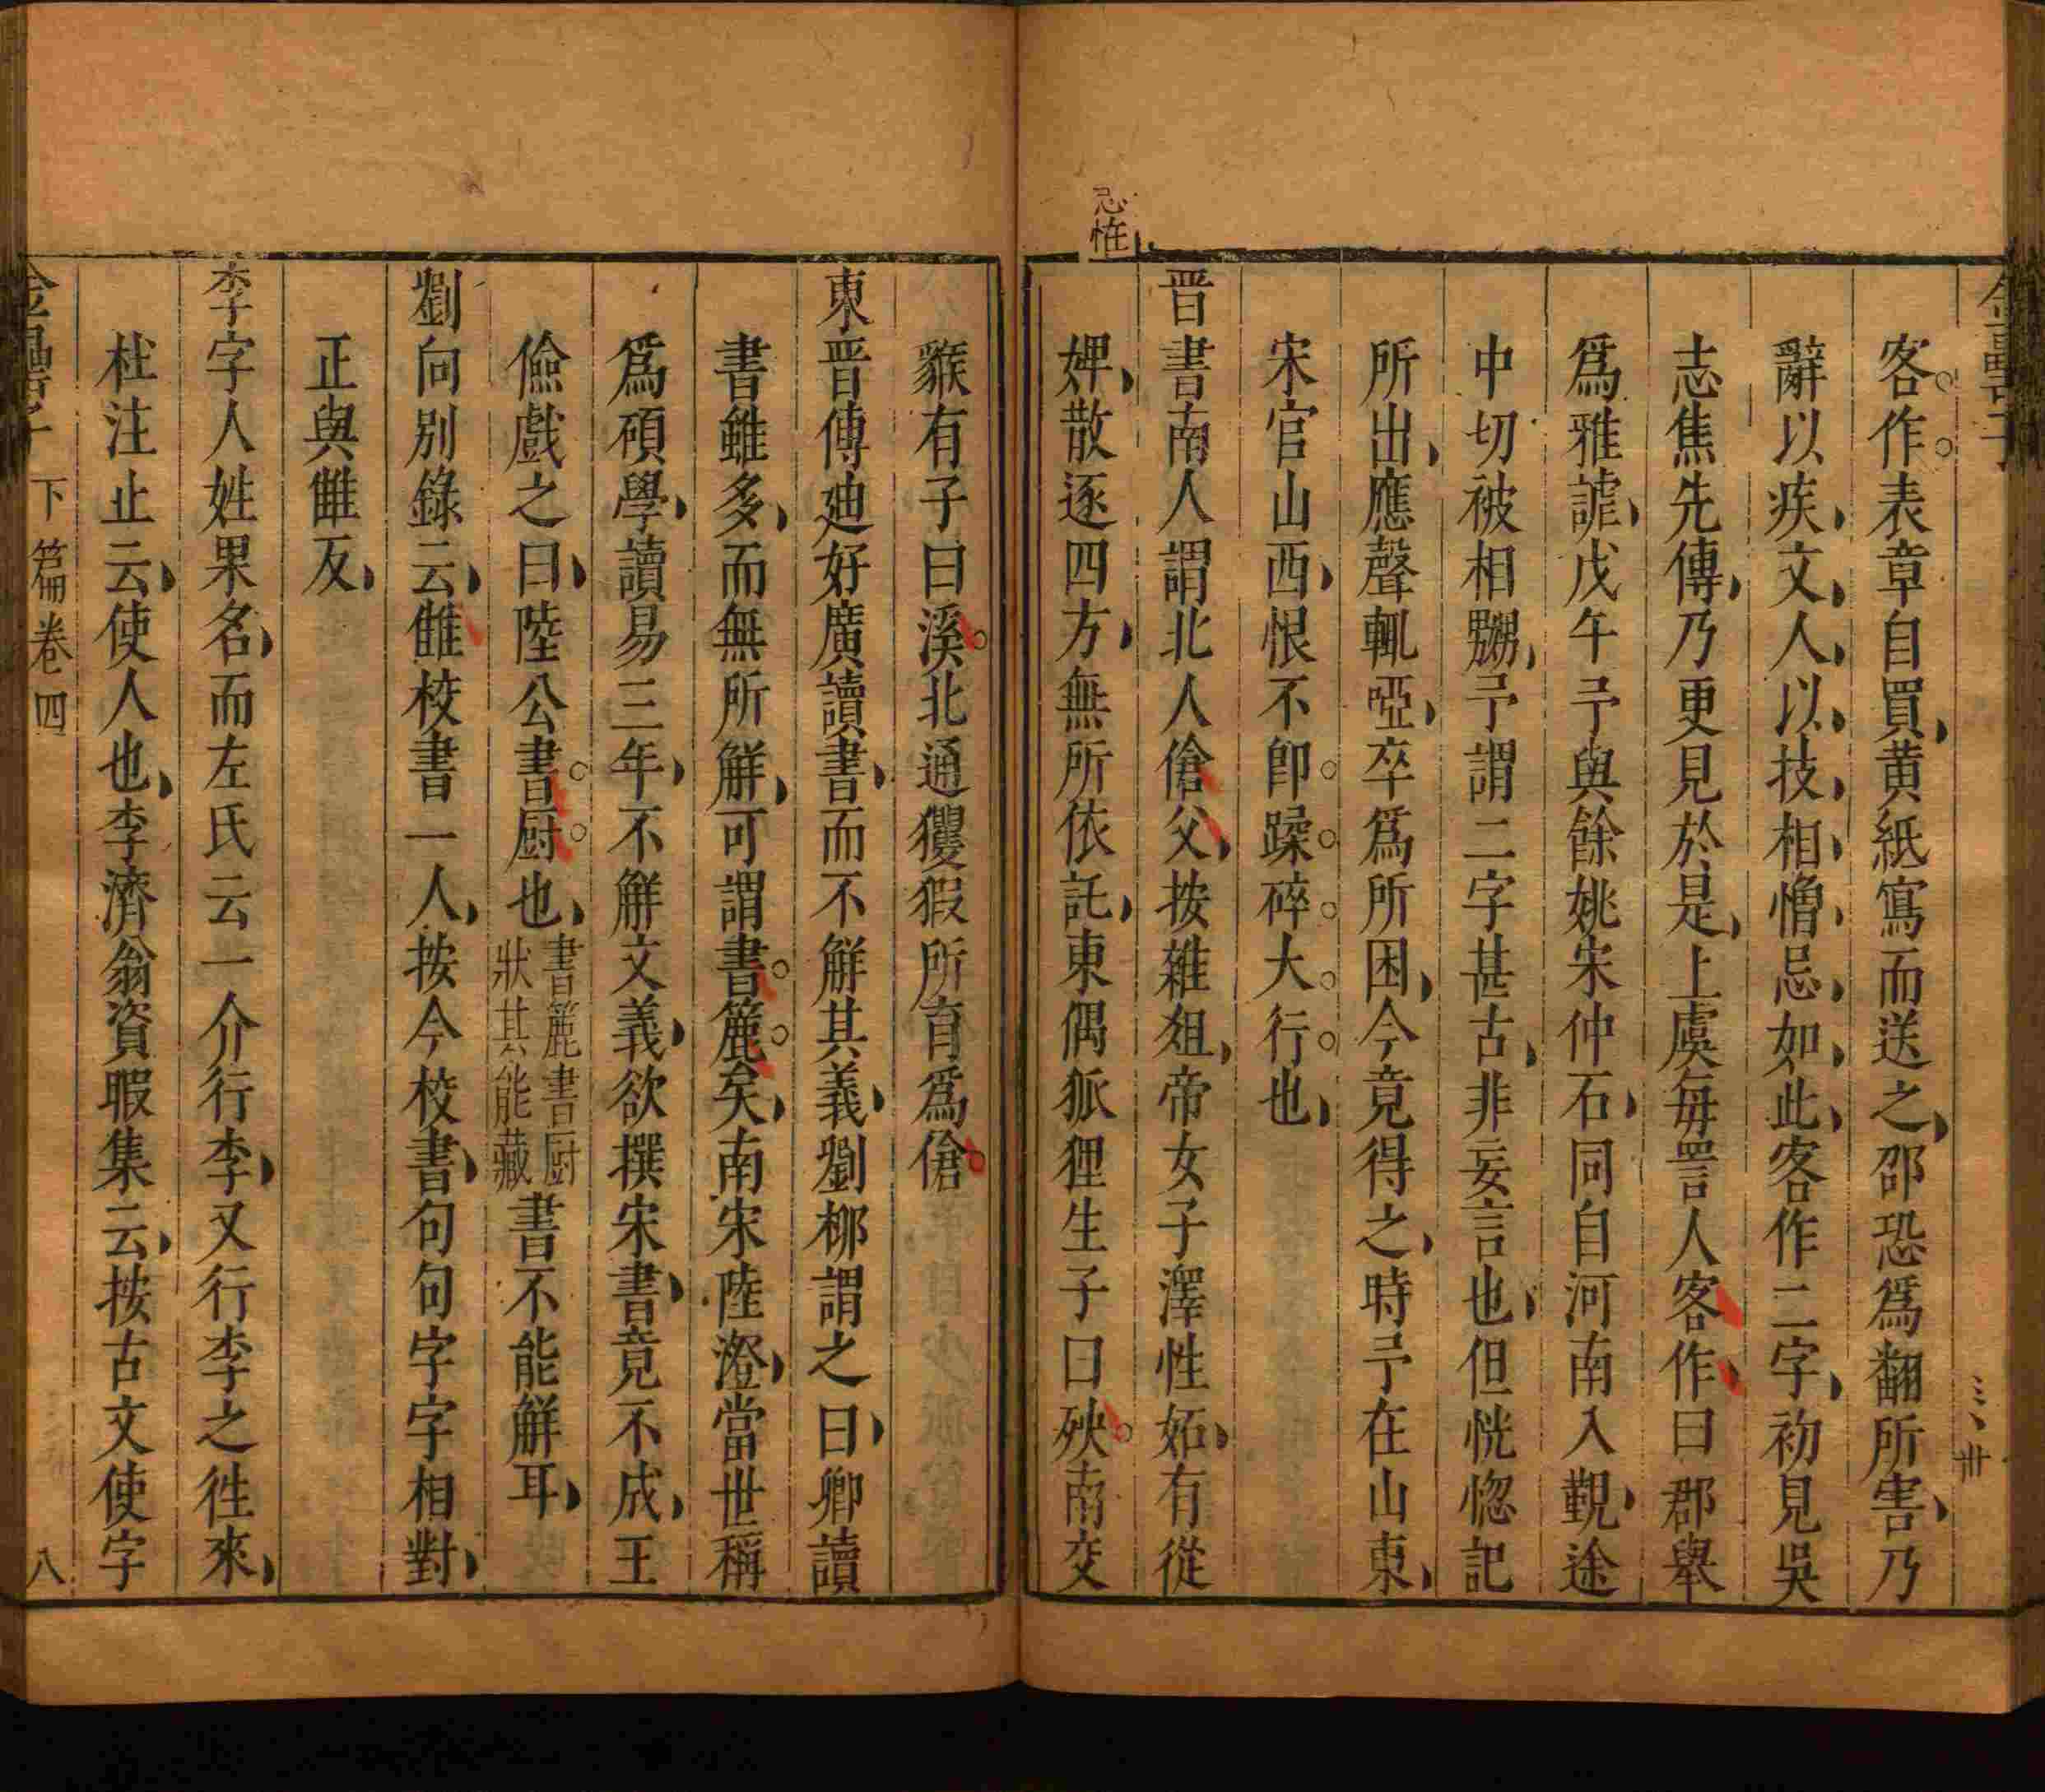 金罍子
客作表章自買黄紙寫而送之邵恐爲翻所害乃
辭以疾文人以技相憎忌如此客作二字初見吳
志焦先傳乃更見於是上虞每詈人客作曰郡舉
爲雅謔戊午予與餘姚宋仲石同自河南入覲途
中切被相嬲予謂二字甚古非妄言也但恍惚記
所出應聲輒啞卒爲所困今竟得之時予在山東
宋官山西恨不卽蹂碎大行也
晋書南人謂北人傖父按雜俎帝女子澤性妬有從
忌惟
婢散逐四方無所依託東偶狐狸生子曰殃南交
猴有子曰溪北通玃猳所育爲傖
東晋傅廸好廣讀書而不解其義劉柳謂之曰卿讀
書雖多而無所解可謂書簏矣南宋陸澄當世稱
爲碩學讀易三年不解文義欲撰宋書竟不成王
儉戲之曰陸公書厨也書簏書厨狀其能藏書不能解耳
劉向别錄云讎校書一人按今校書句句字字相對
正與讎反
李字人姓果名而左氏云一介行李又行李之徃來
杜注止云使人也李濟翁資暇集云按古文使字
金罍子 下篇卷四 八